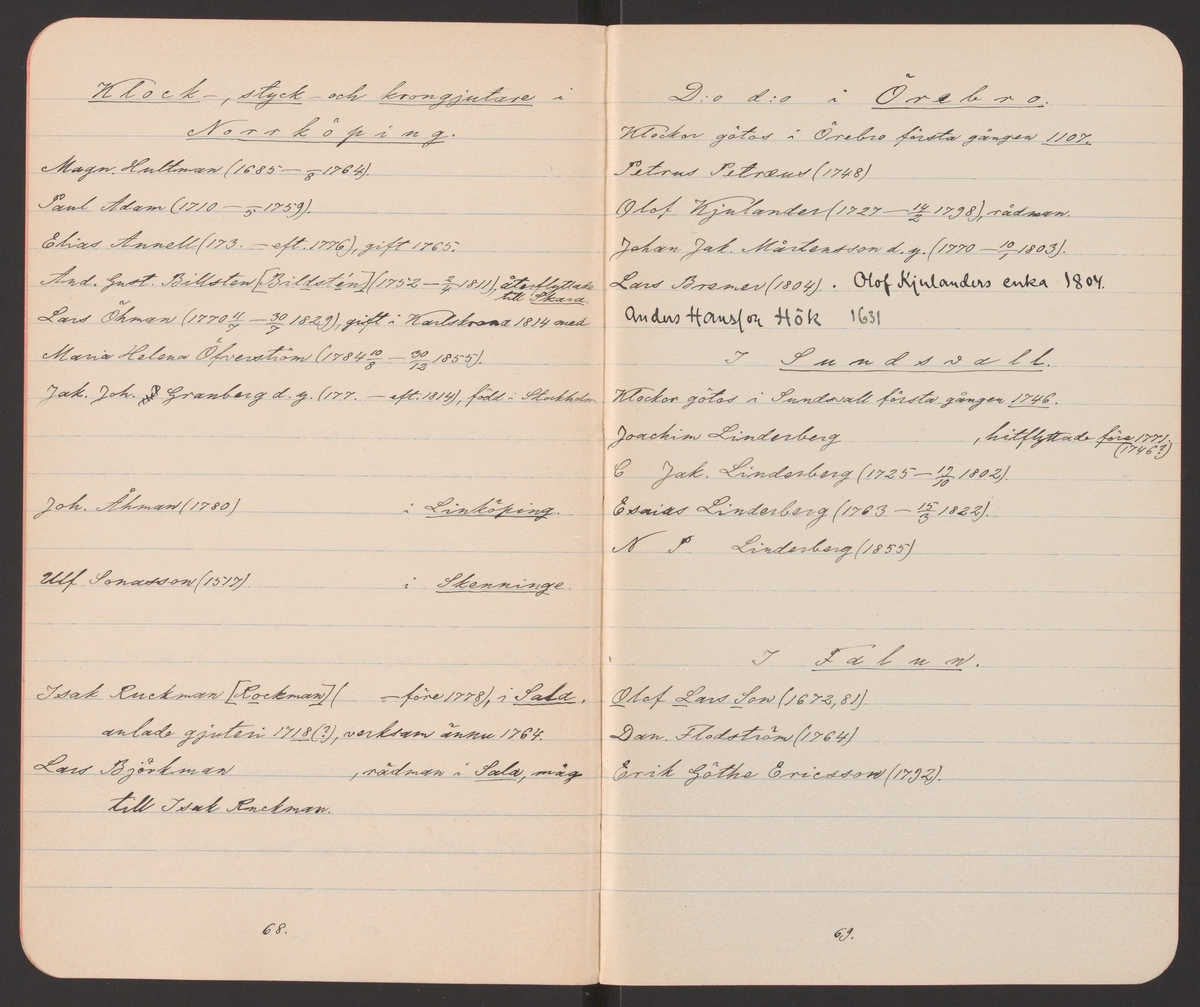 Klock-, styck- och krongjutare i
Norrköping.
Magn. Hultman (1685 — /8 1764).
Paul Adam (1710 — /5 1759).
Elias Annell (173. — eft. 1776), gift 1765.
And. Gust. Billsten [Bildstén] (1752 — 2/4 1811), återflyttade
till Skara.
Lars Öhman (1770 11/7 — 30/7 1829), gift i Karlskrona 1814 med
Maria Helena Öfverström (1784 10/8 — 30/12 1855).
Jak. Joh. Granberg d. y. (177. — eft. 1814), född i Stockholm
Joh. Åhman (1780) i Linköping.
Ulf Sonasson (1517) i Skenninge.
Isak Ruckman [Rockman] ( — före 1778), i Sala,
anlade gjuteri 1718(?), verksam ännu 1764.
Lars Björkman , rådman i Sala, måg
till Isak Ruckman.
68.
D:o d:o i Örebro.
Klockor götos i Örebro första gången 1107.
Petrus Petræus (1748)
Olof Kjulander (1727 — 14/2 1798), rådman.
Johan Jak. Mårtensson d. y. (1770 — 10/1 1803).
Lars Bremer (1804). Olof Kjulanders enka 1804.
Anders Hansson Hök 1631
I Sundsvall.
Klockor götos i Sundsvall första gången 1746.
Joachim Linderberg , hitflyttade före 1771.
(1746?)
C Jak. Linderberg (1725 — 17/10 1802).
Esaias Linderberg (1763 — 15/3 1822).
N P Linderberg (1855)
I Falun.
Olof Lars Son (1672, 81)
Dan. Flodström (1764)
Erik Göthe Ericsson (1792).
69.